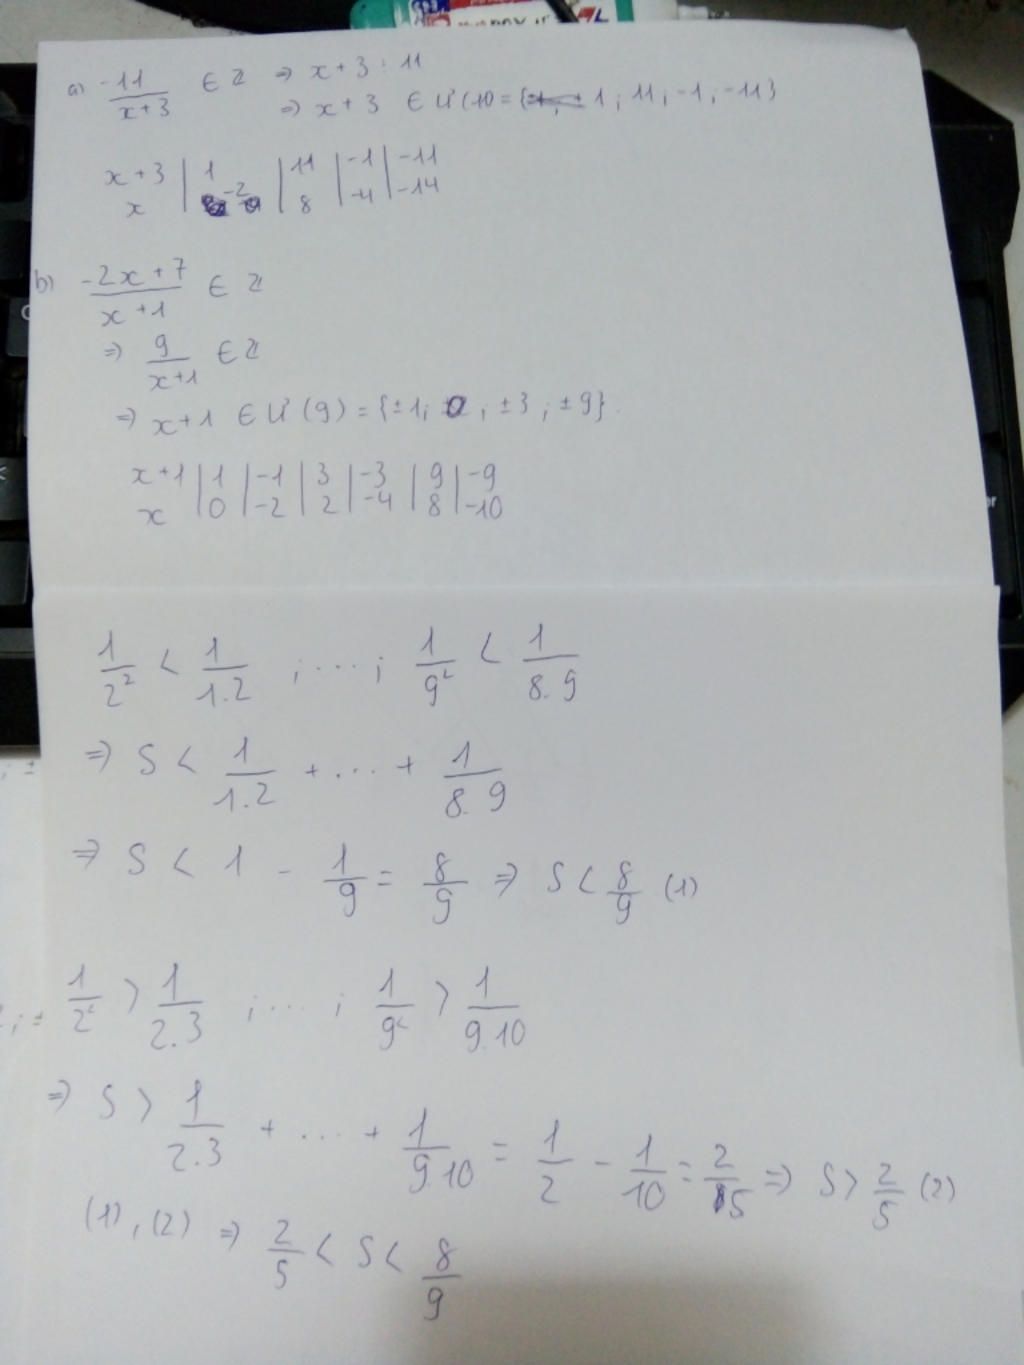 a) -11/(x+3) ∈ Z ⇒ x+3 ⋮ 11
⇒ x+3 ∈ Ư(10 = {1; 11; -1; -11}
x+3 | 1 | 11 | -1 | -11
x | -2 | 8 | -4 | -14
b) (-2x+7)/(x+1) ∈ Z
⇒ 9/(x+1) ∈ Z
⇒ x+1 ∈ Ư(9) = {±1; ; ±3; ±9}.
x+1 | 1 | -1 | 3 | -3 | 9 | -9
x | 0 | -2 | 2 | -4 | 8 | -10
1/2² < 1/1.2 ; ... ; 1/9² < 1/8.9
⇒ S < 1/1.2 + ... + 1/8.9
⇒ S < 1 - 1/9 = 8/9 ⇒ S < 8/9 (1)
1/2² > 1/2.3 ; ... ; 1/9² > 1/9.10
⇒ S > 1/2.3 + ... + 1/9.10 = 1/2 - 1/10 = 2/5 ⇒ S > 2/5 (2)
(1), (2) ⇒ 2/5 < S < 8/9